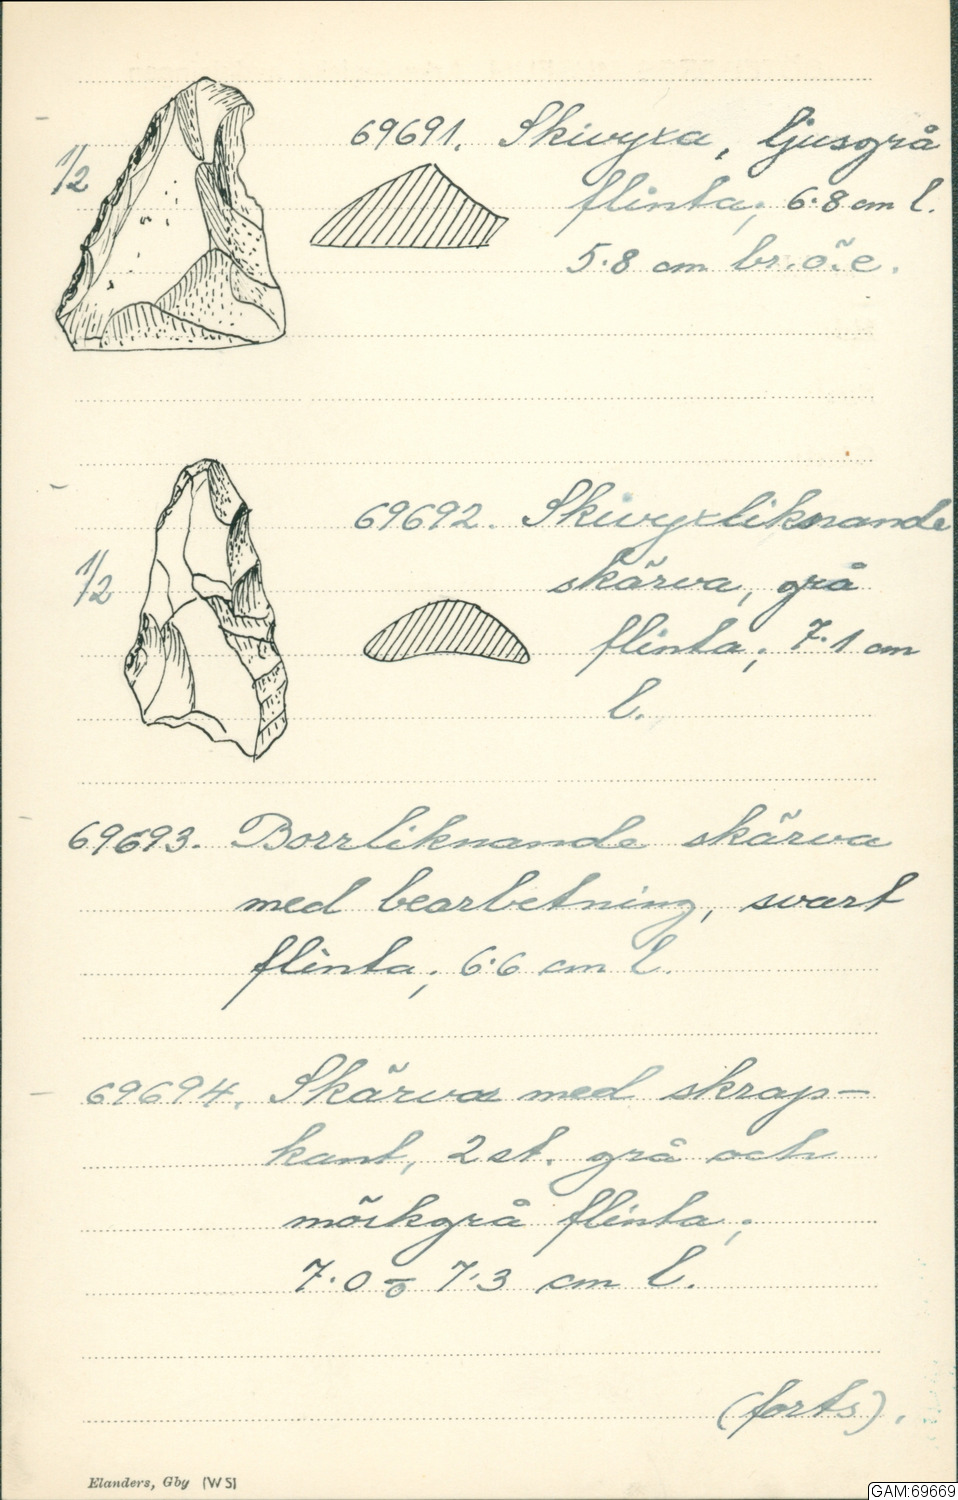 1/2
69691. Skivyxa, ljusgrå
flinta; 6.8 cm l.
5.8 cm br. ö. e.
1/2
69692. Skivyxliknande
skärva, grå
flinta; 7.1 cm
l.
69693. Borrliknande skärva
med bearbetning, svart
flinta; 6.6 cm l.
69694. Skärvor med skrap-
kant, 2 st. grå och
mörkgrå flinta;
7.0 o 7.3 cm l.
(forts).
Elanders, Gby (WS)
GAM:69669